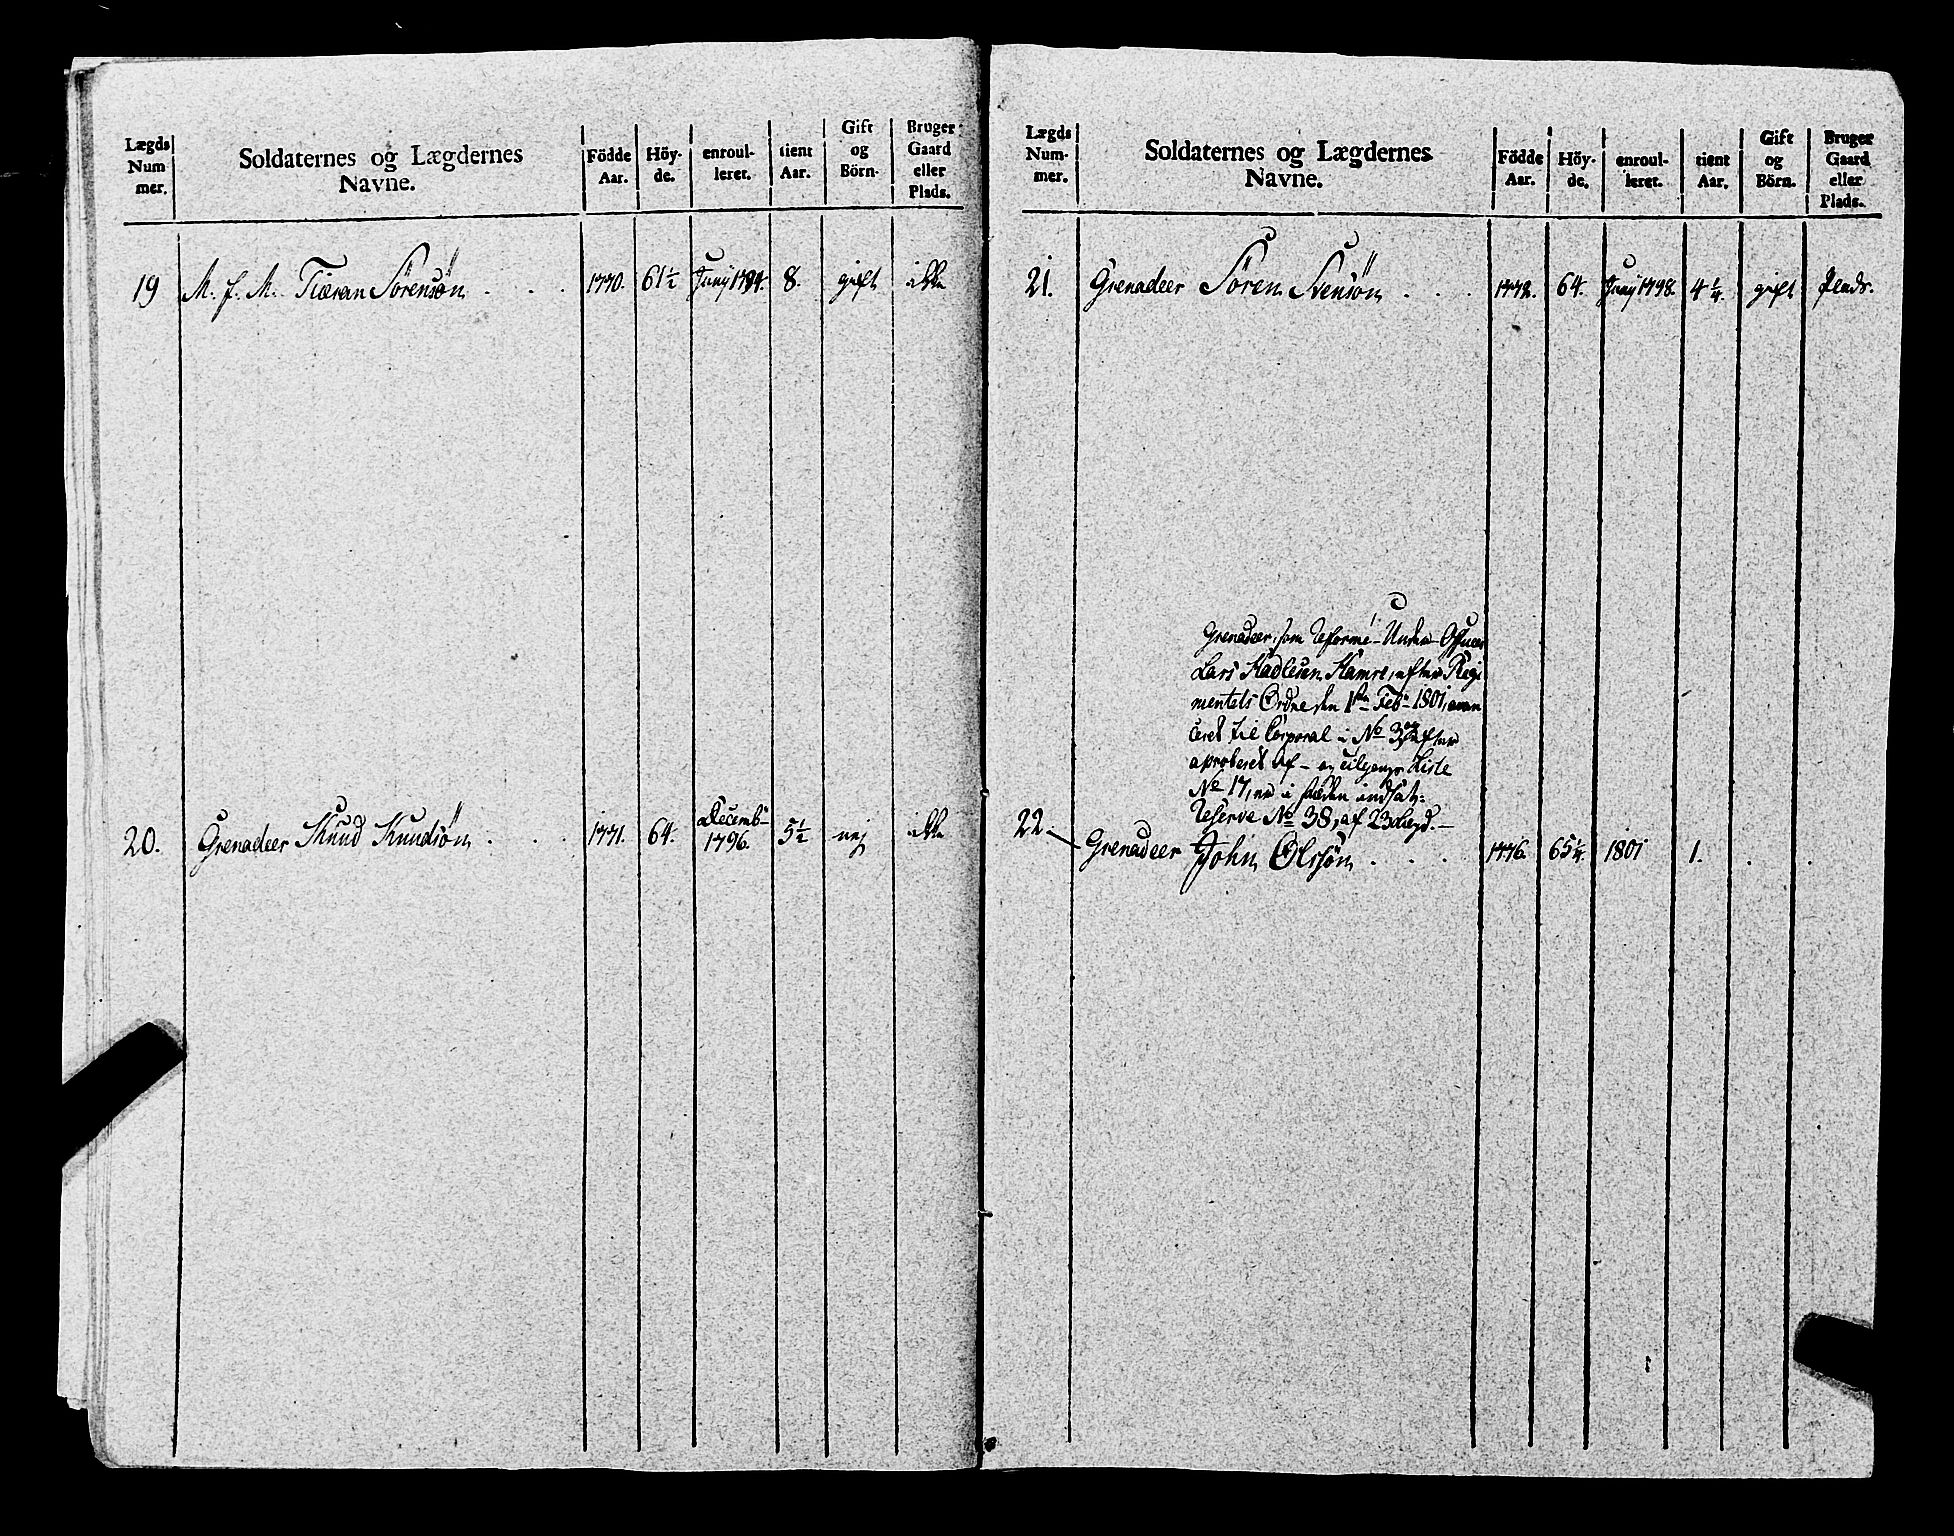 Lægds Num mer.
Soldaternes og Lægdernes Navne.
Födde Aar.
Höy- de.
enroul- leret.
tient Aar.
Gift og Börn.
Bruger Gaard eller Plads.
19 M. f. M. Tiæran Sörensön . . . 1770. 61½ Junj 1794. 8. gift ikke
20. Grenadeer Knud Knudsön . . . 1771. 64. Decemb- 1796. 5½ nej ikke
Lægds Num- mer.
Soldaternes og Lægdernes Navne.
Födde Aar.
Höy- de.
enroul- leret.
tient Aar.
Gift og Börn.
Bruger Gaard eller Plads.
21. Grenadeer Sören Svensön . . . 1772. 64. Junj 1798. 4¼. gift Plads.
Grenadeer, som Reformé-Under-Officeer
Lars Hamre, efter Regi
mentets Ordre den 1ste Feb- 1801, avan
ceret til Corporal i No 3, efter
aproberet Af- og Liste
No 17, er i steden indsat:
Reserve No 38, af 23 Lægd.-
22- Grenadeer John Olssön . . . 1776. 65¼. 1801 1. . .